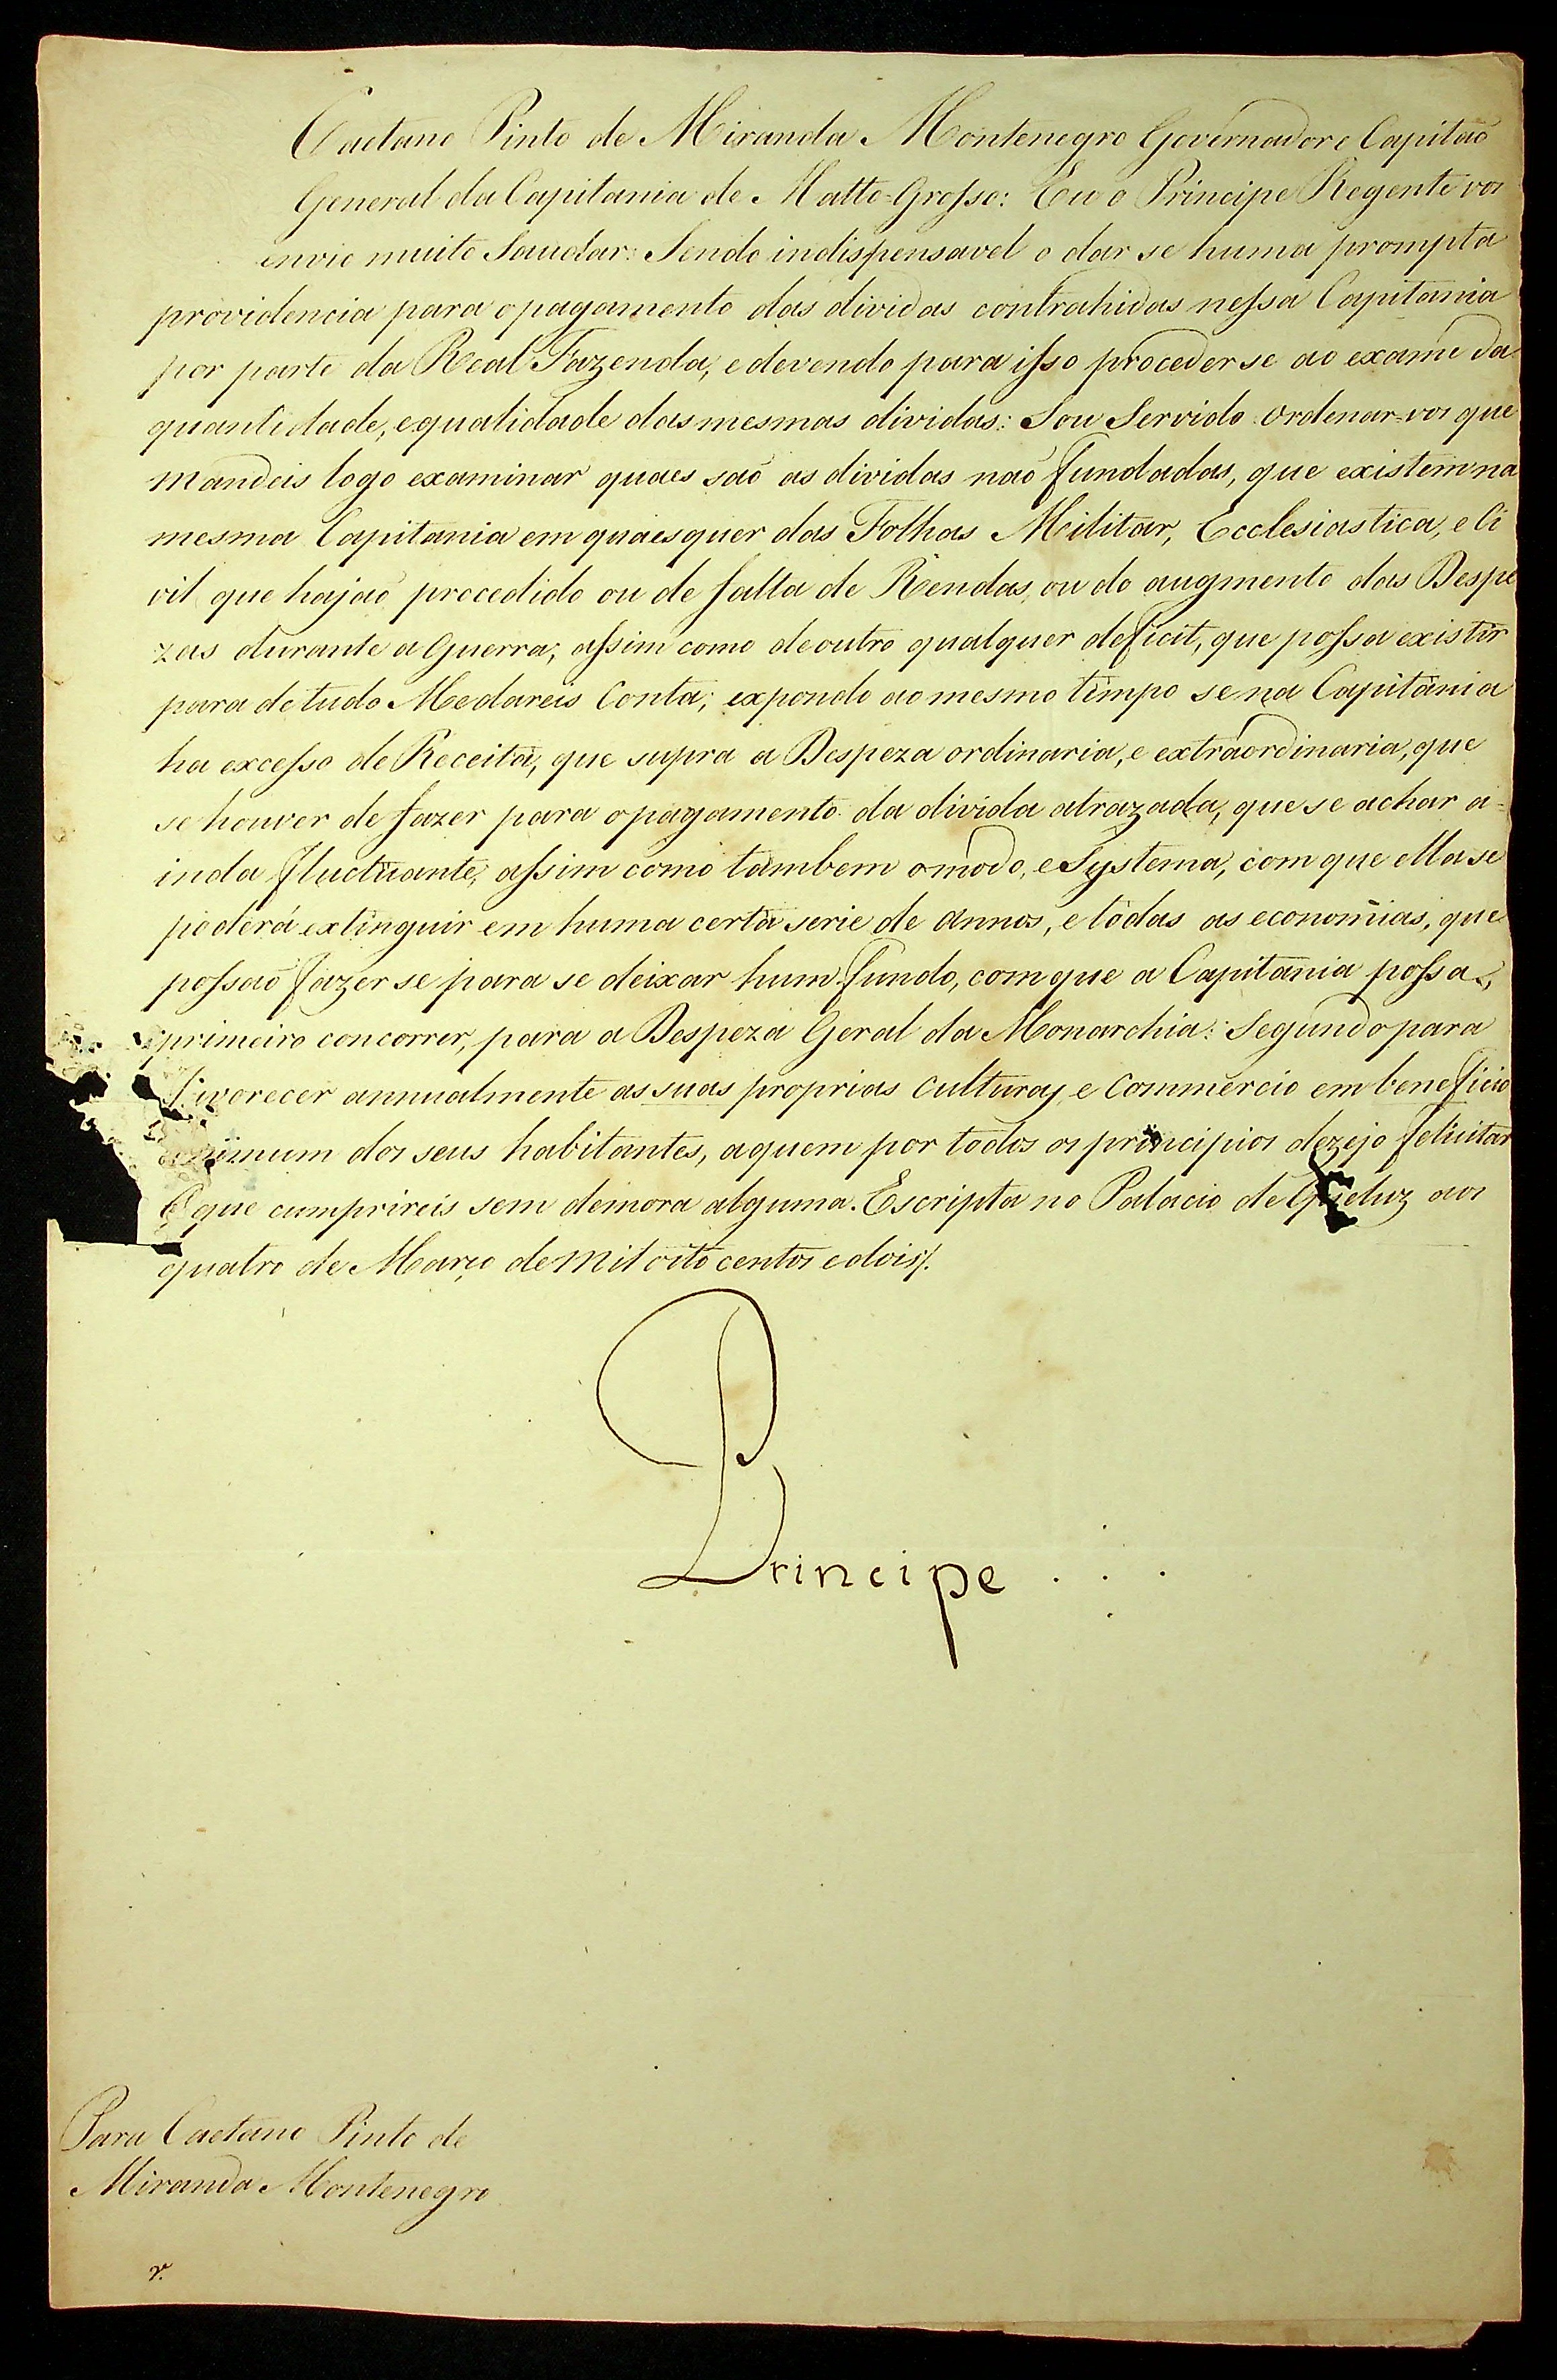 Caetano Pinto de Miranda Montenegro Governador e Capitaõ
General da Capitania de Matto-Grosso: Eu o Principe Regente vos
envio muito Saudar: Sendo indispensavel o dar se huma prompta
providencia para o pagamento das dividas contrahidas nessa Capitania
por parte da Real Fazenda, e devendo para isso proceder se ao exame da
quantidade, e qualidade das mesmas dividas: Sou Servido ordenar-vos que
mandeis logo examinar quaes saõ as dividas naõ fundadas, que existem na
mesma Capitania em quaesquer das Folhas Militar, Ecclesiastica, e Ci
vil que hajaõ procedido ou de falta de Rendas, ou do augmento das Despe
zas durante a Guerra; assim como de outro qualquer deficit, que possa existir
para de tudo Me dareis Conta; expondo ao mesmo tempo se na Capitania
ha excesso de Receita, que supra a Despeza ordinaria, e extraordinaria, que
se houver de fazer para o pagamento da divida atrazada, que se achar a-
inda fluctuante, assim como tambem o modo, e Systema, com que ella se
poderá extinguir em huma certa serie de annos, e todas as economias, que
possaõ fazer se para se deixar hum fundo, com que a Capitania possa,
primeiro concorrer, para a Despeza Geral da Monarchia: Segundo para
favorecer annualmente as suas proprias culturas, e Commercio em beneficio
dos seus habitantes, a quem por todos os principios dezejo felicitar
O que cumprireis sem demora alguma. Escripta no Palacio de Queluz aos
quatro de Março de mil oito centos e dois/.
Principe . . .
Para Caetano Pinto de
Miranda Montenegro